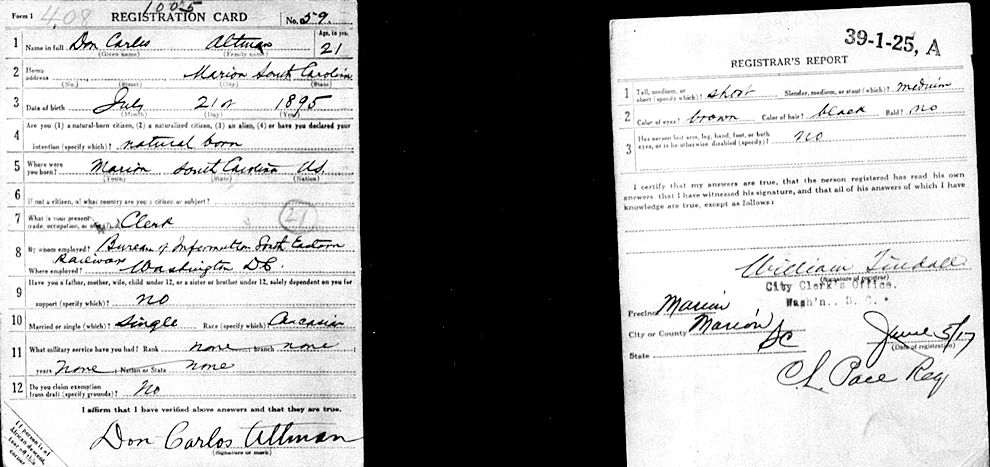 Form 1 408 1005 REGISTRATION CARD No. 59
1 Name in full Don Carlos Altman Age, in yrs. 21
(Given name) (Family name)
2 Home address Marion South Carolina
(No.) (Street) (City) (State)
3 Date of birth July 21st 1895
(Month) (Day) (Year)
4 Are you (1) a natural-born citizen, (2) a naturalized citizen, (3) an alien, (4) or have you declared your
intention (specify which)? natural born
5 Where were you born? Marion South Carolina U.S.
(Town) (State) (Nation)
6 If not a citizen, of what country are you a citizen or subject?
7 What is your present trade, occupation, or office? Clerk 21
8 By whom employed? Bureau of Information South Eastern
Railways
Where employed? Washington D.C.
9 Have you a father, mother, wife, child under 12, or a sister or brother under 12, solely dependent on you for
support (specify which)? no
10 Married or single (which)? Single Race (specify which)? Caucasian
11 What military service have you had? Rank none ; branch none ;
years none ; Nation or State none
12 Do you claim exemption from draft (specify grounds)? No
I affirm that I have verified above answers and that they are true.
Don Carlos Altman
(Signature or mark)
If person is of
African descent,
tear off this
corner
39-1-25, A
REGISTRAR'S REPORT
1 Tall, medium, or short (specify which)? short Slender, medium, or stout (which)? medium
2 Color of eyes? brown Color of hair? black Bald? no
3 Has person lost arm, leg, hand, foot, or both
eyes, or is he otherwise disabled (specify)? no
I certify that my answers are true, that the person registered has read his own
answers that I have witnessed his signature, and that all of his answers of which I have
knowledge are true, except as follows:
William Tindall
(Signature of registrar)
City Clerk's Office.
Wash'n., D. C.
Precinct Marion
City or County Marion
State SC June 5/17
(Date of registration)
C.L. Pace Reg